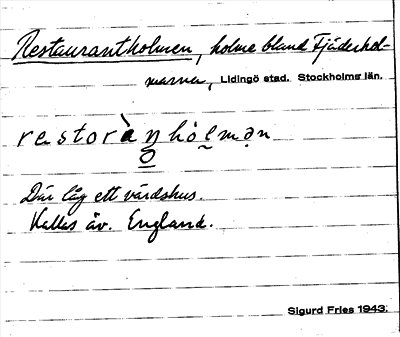 Restaurantholmen, holme bland Fjäderhol-
marna, Lidingö stad. Stockholms län.
restoràŋhòlmən
o
Där låg ett värdshus.
Kallas äv. England.
Sigurd Fries 1943.